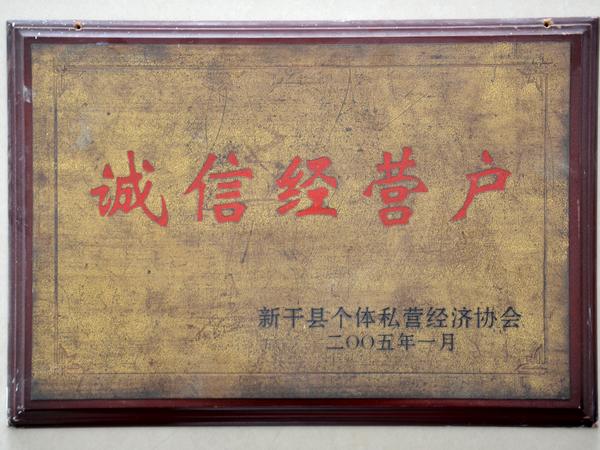 诚信经营户
新干县个体私营经济协会
二〇〇五年一月